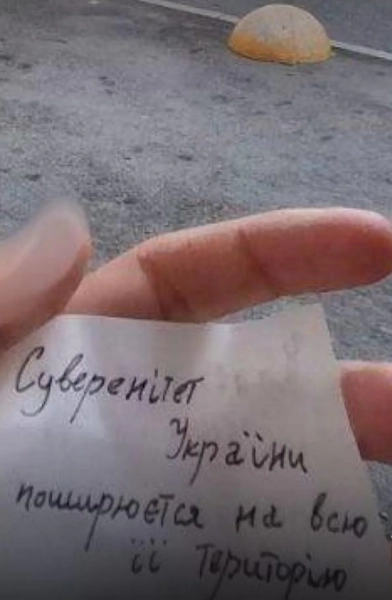 Суверенітет
України
поширюєтся на всю
її територію